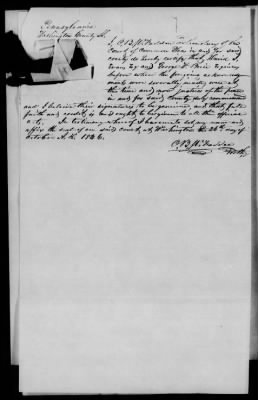 Pennsylvania
Washington County Ss.
I, O. B. McFadden Prothonotary of the
Court of Common Pleas in and for said
county do hereby certify that
Esqr and George
before whom the foregoing acknowledg-
ments were severally made, were at
the time and now justices of the peace
in and for said county duly commissioned
and I believe their signatures to be genuine, and that full
faith and credit is and ought to be given to all their official
acts. In testimony whereof I hereunto set my name and
affix the seal of our said court, at Washington the 26th day of
October A. D. 1846.
O. B. McFadden
Proth.